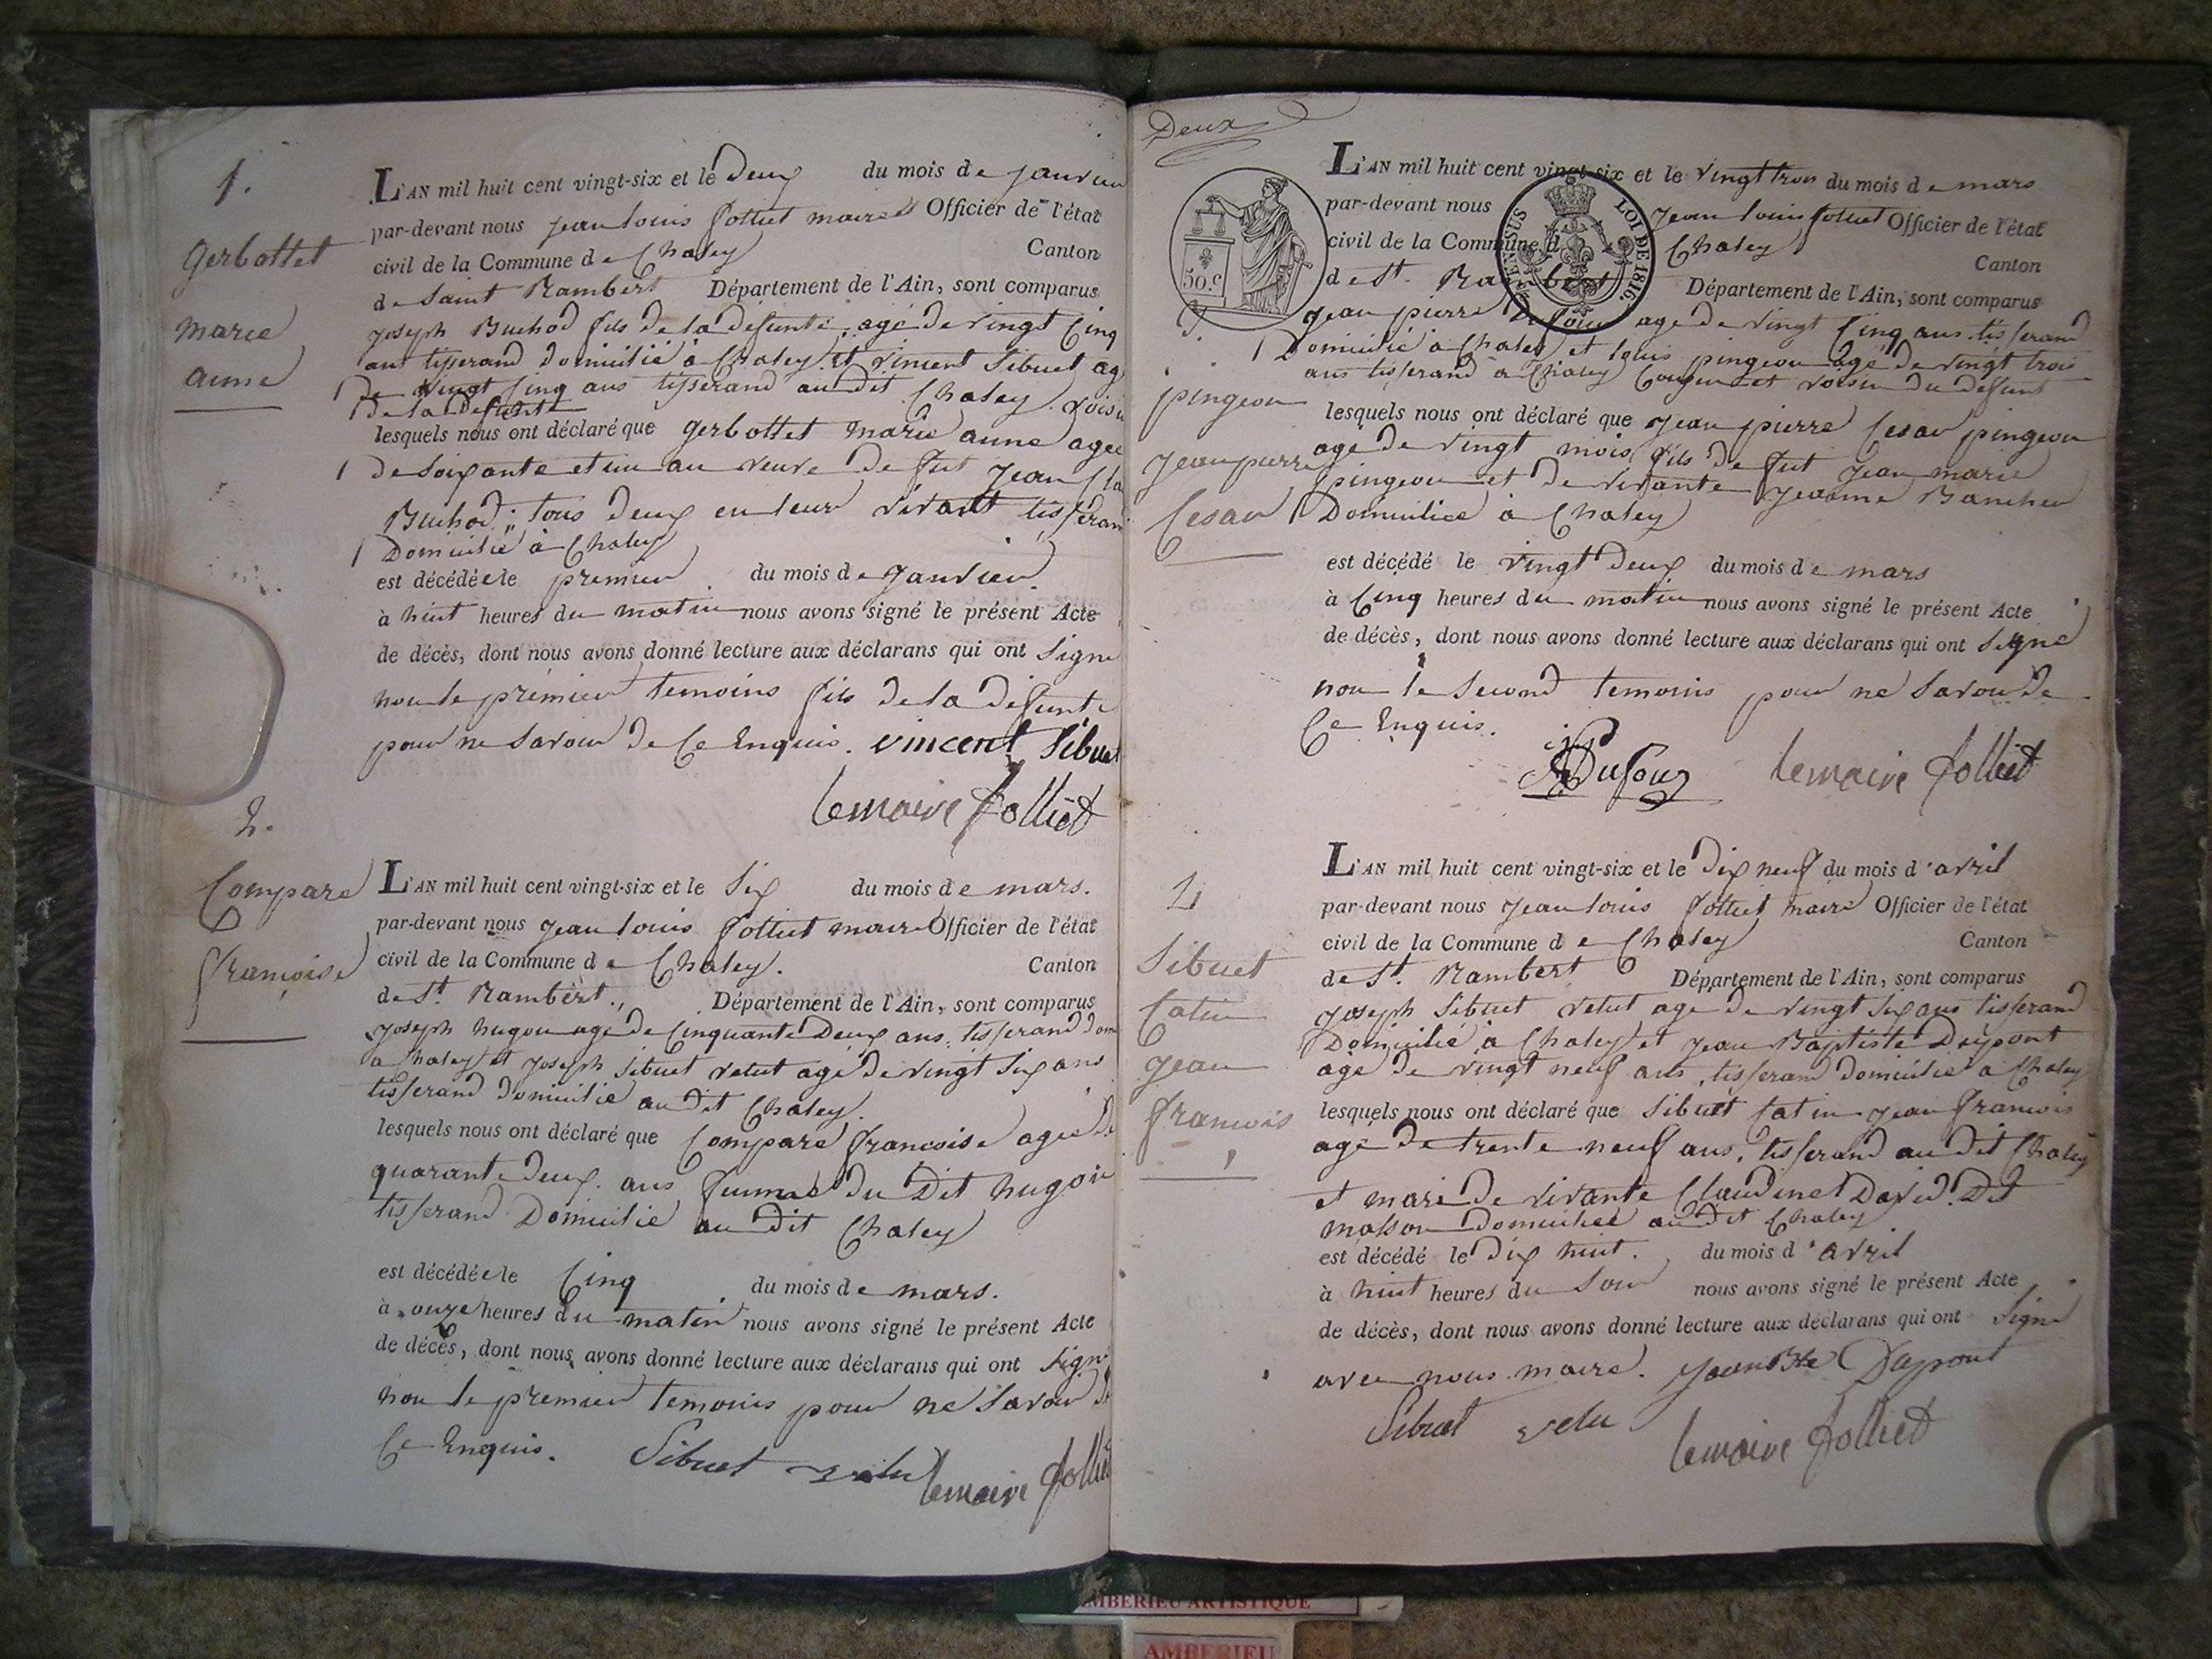 1.
gerbottet
marie
anne
L'AN mil huit cent vingt-six et le Deux du mois de janvier
par-devant nous jean louis folliet maire Officier de l'état
civil de la Commune de Chaley Canton
de Saint Rambert Département de l'Ain, sont comparus
joseph Buchod fils de la defunte, agé de vingt cinq
ans tisserand Domicilié à Chaley et vincent Sibuet ag
De vingt cinq ans tisserand au dit Chaley voisin
De la Defunte
lesquels nous ont déclaré que gerbottet marie anne agee
De soixante et un an veuve De fut jean Cla
Buchod, tous deux en leur vivant tisserand
Domicilié à Chaley
est décédée le premier du mois de janvier
à huit heures du matin nous avons signé le présent Acte
de décès, dont nous avons donné lecture aux déclarans qui ont Signe
non le premier temoins fils de la Defunte
pour ne Savoir De Ce Enquis. vincent Sibuet
lemaire folliet
2.
Compare
françoise
L'AN mil huit cent vingt-six et le Six du mois de mars.
par-devant nous jean louis folliet maire Officier de l'état
civil de la Commune de Chaley. Canton
de St. Rambert., Département de l'Ain, sont comparus
joseph hugon age de Cinquante Deux ans, tisserand dom
a Chaley et joseph Sibuet velut agé de vingt Six ans
tisserand Domicilié au dit Chaley.
lesquels nous ont déclaré que Compare francoise agée De
quarante Deux ans femme Du Dit hugon
tisserand Domicilié au dit Chaley
est décédée le Cinq du mois de mars.
à onze heures du matin nous avons signé le présent Acte
de décès, dont nous avons donné lecture aux déclarans qui ont Signé
non le premier temoins pour ne Savoir De
Ce Enquis. Sibuet velu lemaire folliet
Deux
50.c
LOI DE 1816.
3.
pingeon
jean pierre
Cesar
L'AN mil huit cent vingt-six et le vingt trois du mois de mars
par-devant nous jean louis folliet Officier de l'état
civil de la Commune d Chaley Canton
de St. Rambert Département de l'Ain, sont comparus
jean pierre Dufour age De vingt Cinq ans tisserand
Domicilié à Chaley et louis pingeon age De vingt trois
ans tisserand à Chaley Cousin et voisin Du Defunt
lesquels nous ont déclaré que jean pierre Cesar pingeon
age De vingt mois fils de fut jean marie
pingeon et De vivante jeanne Bancheu
Domiciliée à Chaley
est décédé le vingt Deux du mois de mars
à Cinq heures du matin nous avons signé le présent Acte
de décès, dont nous avons donné lecture aux déclarans qui ont Signé
non le Second temoins pour ne Savoir De
Ce Enquis.
Dufour lemaire folliet
4
Sibuet
Catin
jean
francois
L'AN mil huit cent vingt-six et le Dix neuf du mois d'avril
par-devant nous jean louis folliet maire Officier de l'état
civil de la Commune de Chaley Canton
de St. Rambert Département de l'Ain, sont comparus
joseph Sibuet velut age De vingt Six ans tisserand
Domicilié à Chaley et jean Baptiste Dupont
agé De vingt neuf ans, tisserand domicilié à Chaley
lesquels nous ont déclaré que Sibuet Catin jean francois
agé De trente neuf ans, tisserand au dit Chaley
et mari De vivante Claudine David Dit
masson Domiciliée au dit Chaley
est décédé le Dix huit. du mois d'avril
à huit heures du Soir nous avons signé le présent Acte
de décès, dont nous avons donné lecture aux déclarans qui ont Signé
avec nous maire. jean Bte Dupont
Sibuet velu lemaire folliet
AMBERIEU ARTISTIQUE
AMBERIEU